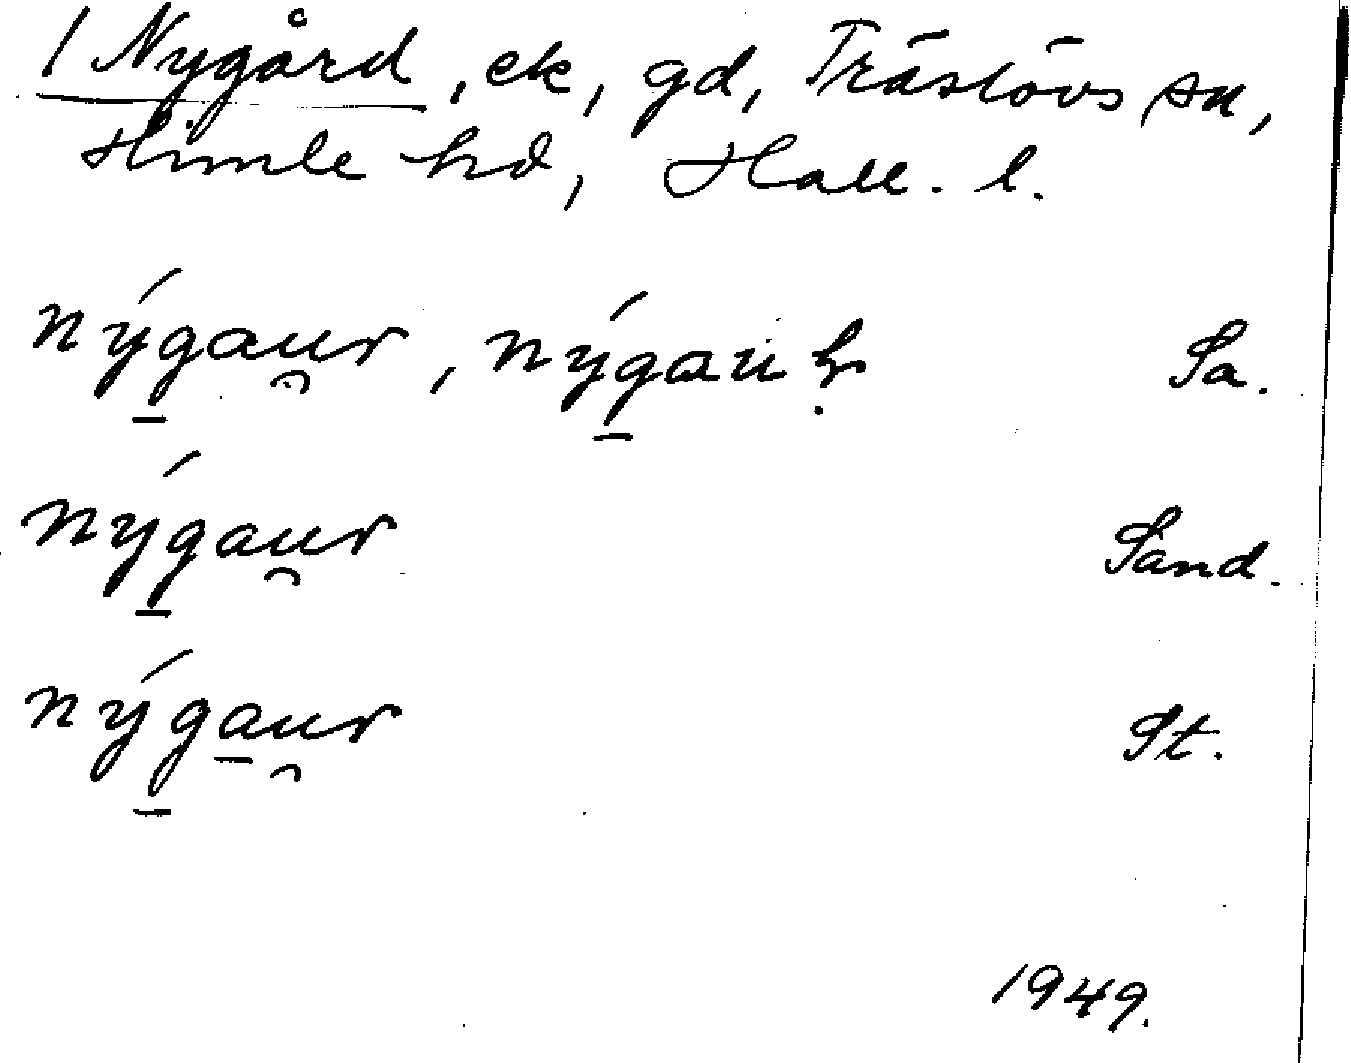 1 Nygård, ek, gd, Träslövs sn,
Himle hd, Hall. l.
nýgau̯r, nýgau Sa.
nýgau̯r Sand.
nýga̱u̯r St.
1949.